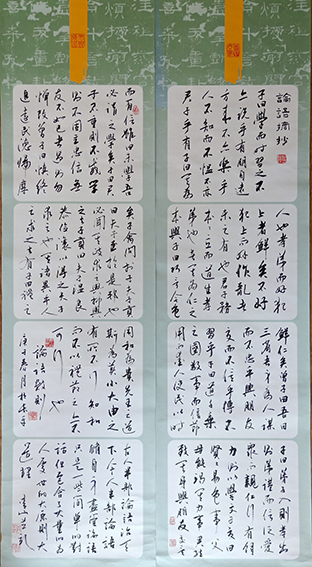 論語摘抄
子曰學而時習之不
亦說乎有朋自遠
方來不亦樂乎
人不知而不慍不亦
君子乎有子曰其為
人也孝弟而好犯
上者鮮矣不好
犯上而好作亂者
未之有也君子務
本本立而道生孝
弟也者其為仁之
本與子曰巧言令色
鮮仁矣曾子曰吾日
三省吾身為人謀
而不忠乎與朋友
交而不信乎傳不
習乎子曰道千乘
之國敬事而信節
用而愛人使民以時
子曰弟子入則孝出
則弟謹而信汎愛
眾而親仁行有餘
力則以學文子夏曰
賢賢易色事父
母能竭其力事君能
致其身與朋友交言
而有信雖曰未學吾
必謂之學矣子曰君
子不重則不威學
則不固主忠信無
友不如己者過則勿
憚改曾子曰慎終
追遠民德歸厚
矣子禽問於子貢
曰夫子至於是邦也
必聞其政求之與抑與
之與子貢曰夫子溫良
恭儉讓以得之夫子
之求之也其諸異乎人
之求之與有子曰禮之
用和為貴先王之道
斯為美小大由之
有所不行知和
而和不以禮節之亦不
可行也
論語數則
庚子春月於
古人半部論語治天
下今人半部論語
脩自身儘管論語
只是一些簡單的對
話但包含了大量的為
人處世的大原則大
道理